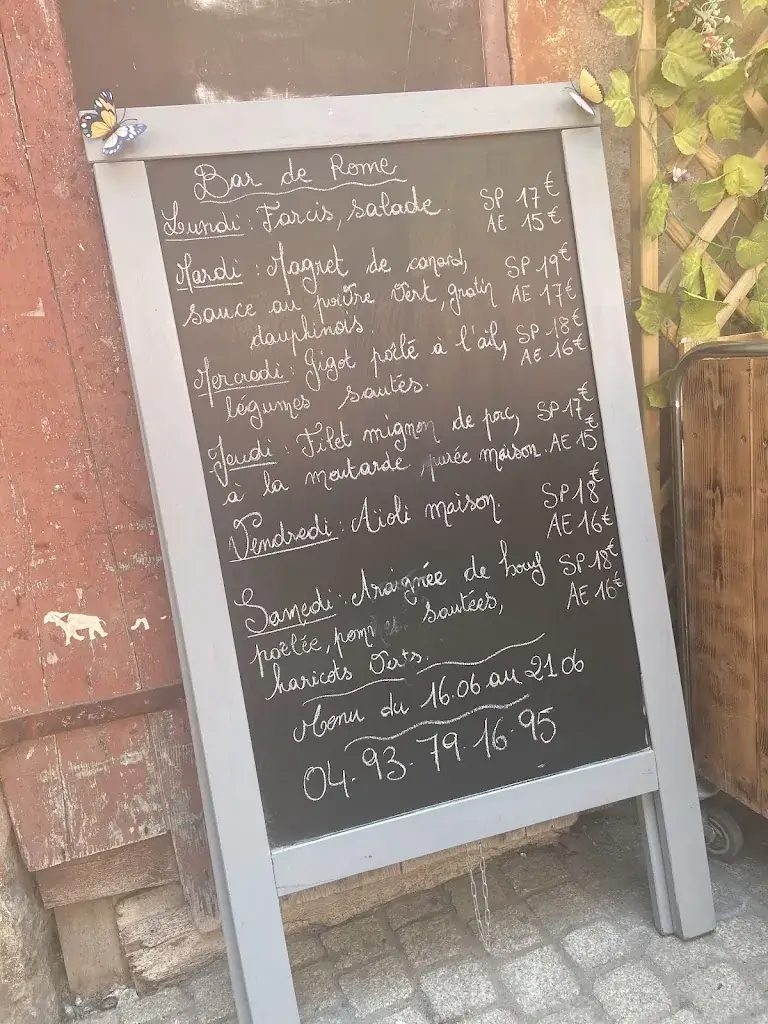 Bar de Rome
Lundi : Farcis, salade. SP 17€
AE 15€
Mardi : Magret de canard, SP 19€
sauce au poivre vert, gratin AE 17€
dauphinois.
Mercredi : Gigot poêlé à l'ail, SP 18€
légumes sautés. AE 16€
Jeudi : Filet mignon de porc, SP 17€
à la moutarde purée maison. AE 15€
Vendredi : Aïoli maison. SP 18€
AE 16€
Samedi : Araignée de bœuf SP 18€
poêlée, pommes sautées, AE 16€
haricots verts.
Menu du 16.06 au 21 06
04.93.79.16.95